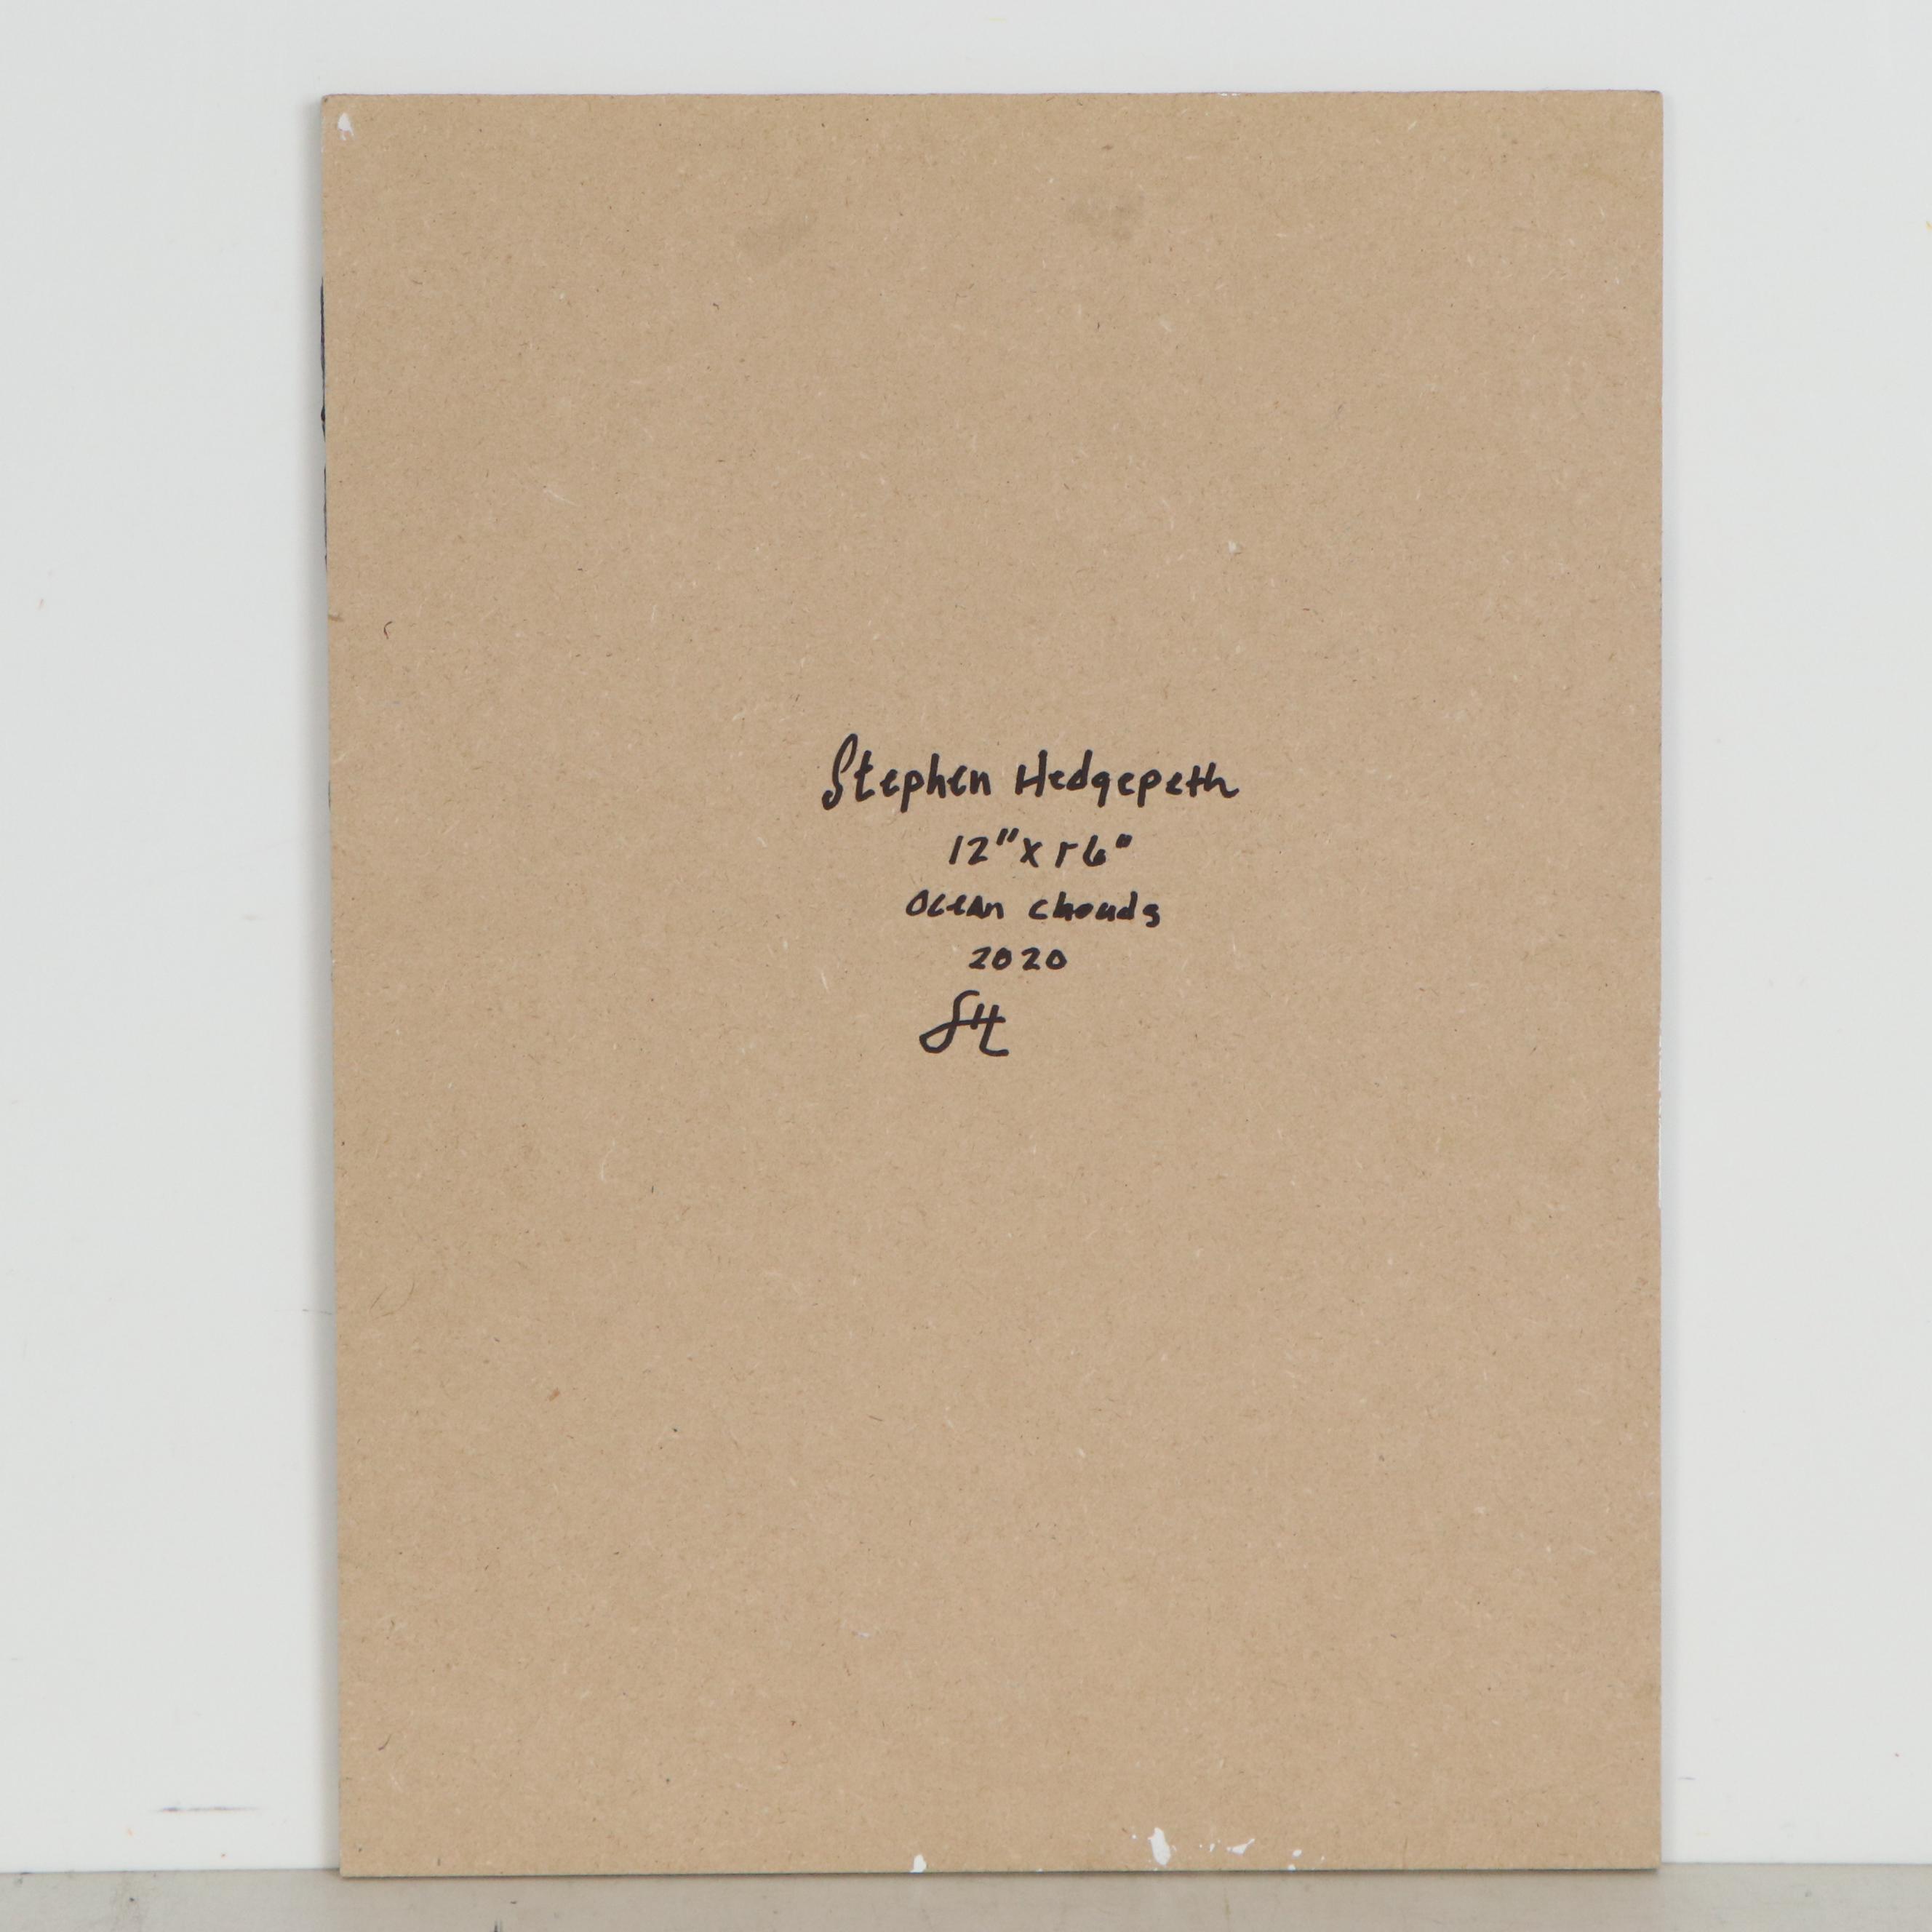 Stephen Hedgepeth
12" x 16"
Ocean Clouds
2020
SH